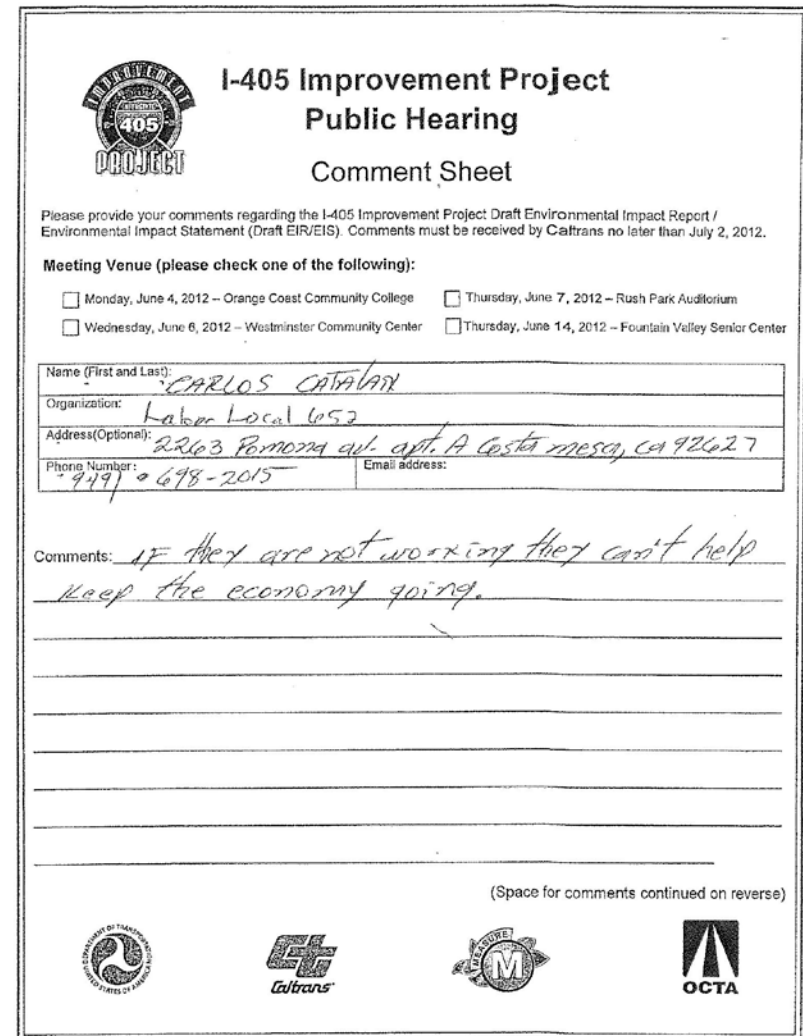 IMPROVEMENT
INTERSTATE
405
PROJECT
I-405 Improvement Project
Public Hearing
Comment Sheet
Please provide your comments regarding the I-405 Improvement Project Draft Environmental Impact Report /
Environmental Impact Statement (Draft EIR/EIS). Comments must be received by Caltrans no later than July 2, 2012.
Meeting Venue (please check one of the following):
Monday, June 4, 2012 – Orange Coast Community College
Thursday, June 7, 2012 – Rush Park Auditorium
Wednesday, June 6, 2012 – Westminster Community Center
Thursday, June 14, 2012 – Fountain Valley Senior Center
Name (First and Last): CARLOS CATALAN
Organization: Labor Local 652
Address(Optional): 2263 Pomona av. apt. A Costa mesa, ca 92627
Phone Number: 949) 698-2015
Email address:
Comments: IF they are not working they can't help
keep the economy going.
(Space for comments continued on reverse)
DEPARTMENT OF TRANSPORTATION
UNITED STATES OF AMERICA
Caltrans
MEASURE
M
OCTA